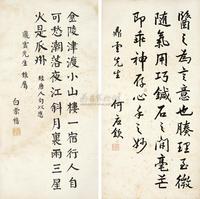 醫之為言意也腠理至微
隨氣用巧鍼石之間毫芒
即乖神存心手之妙
鼎雲先生 何應欽
金陵津渡小山樓一宿行人自
可愁潮落夜江斜月裏兩三星
火是瓜州 錄唐人句以應
鼎雲先生雅屬
白崇禧